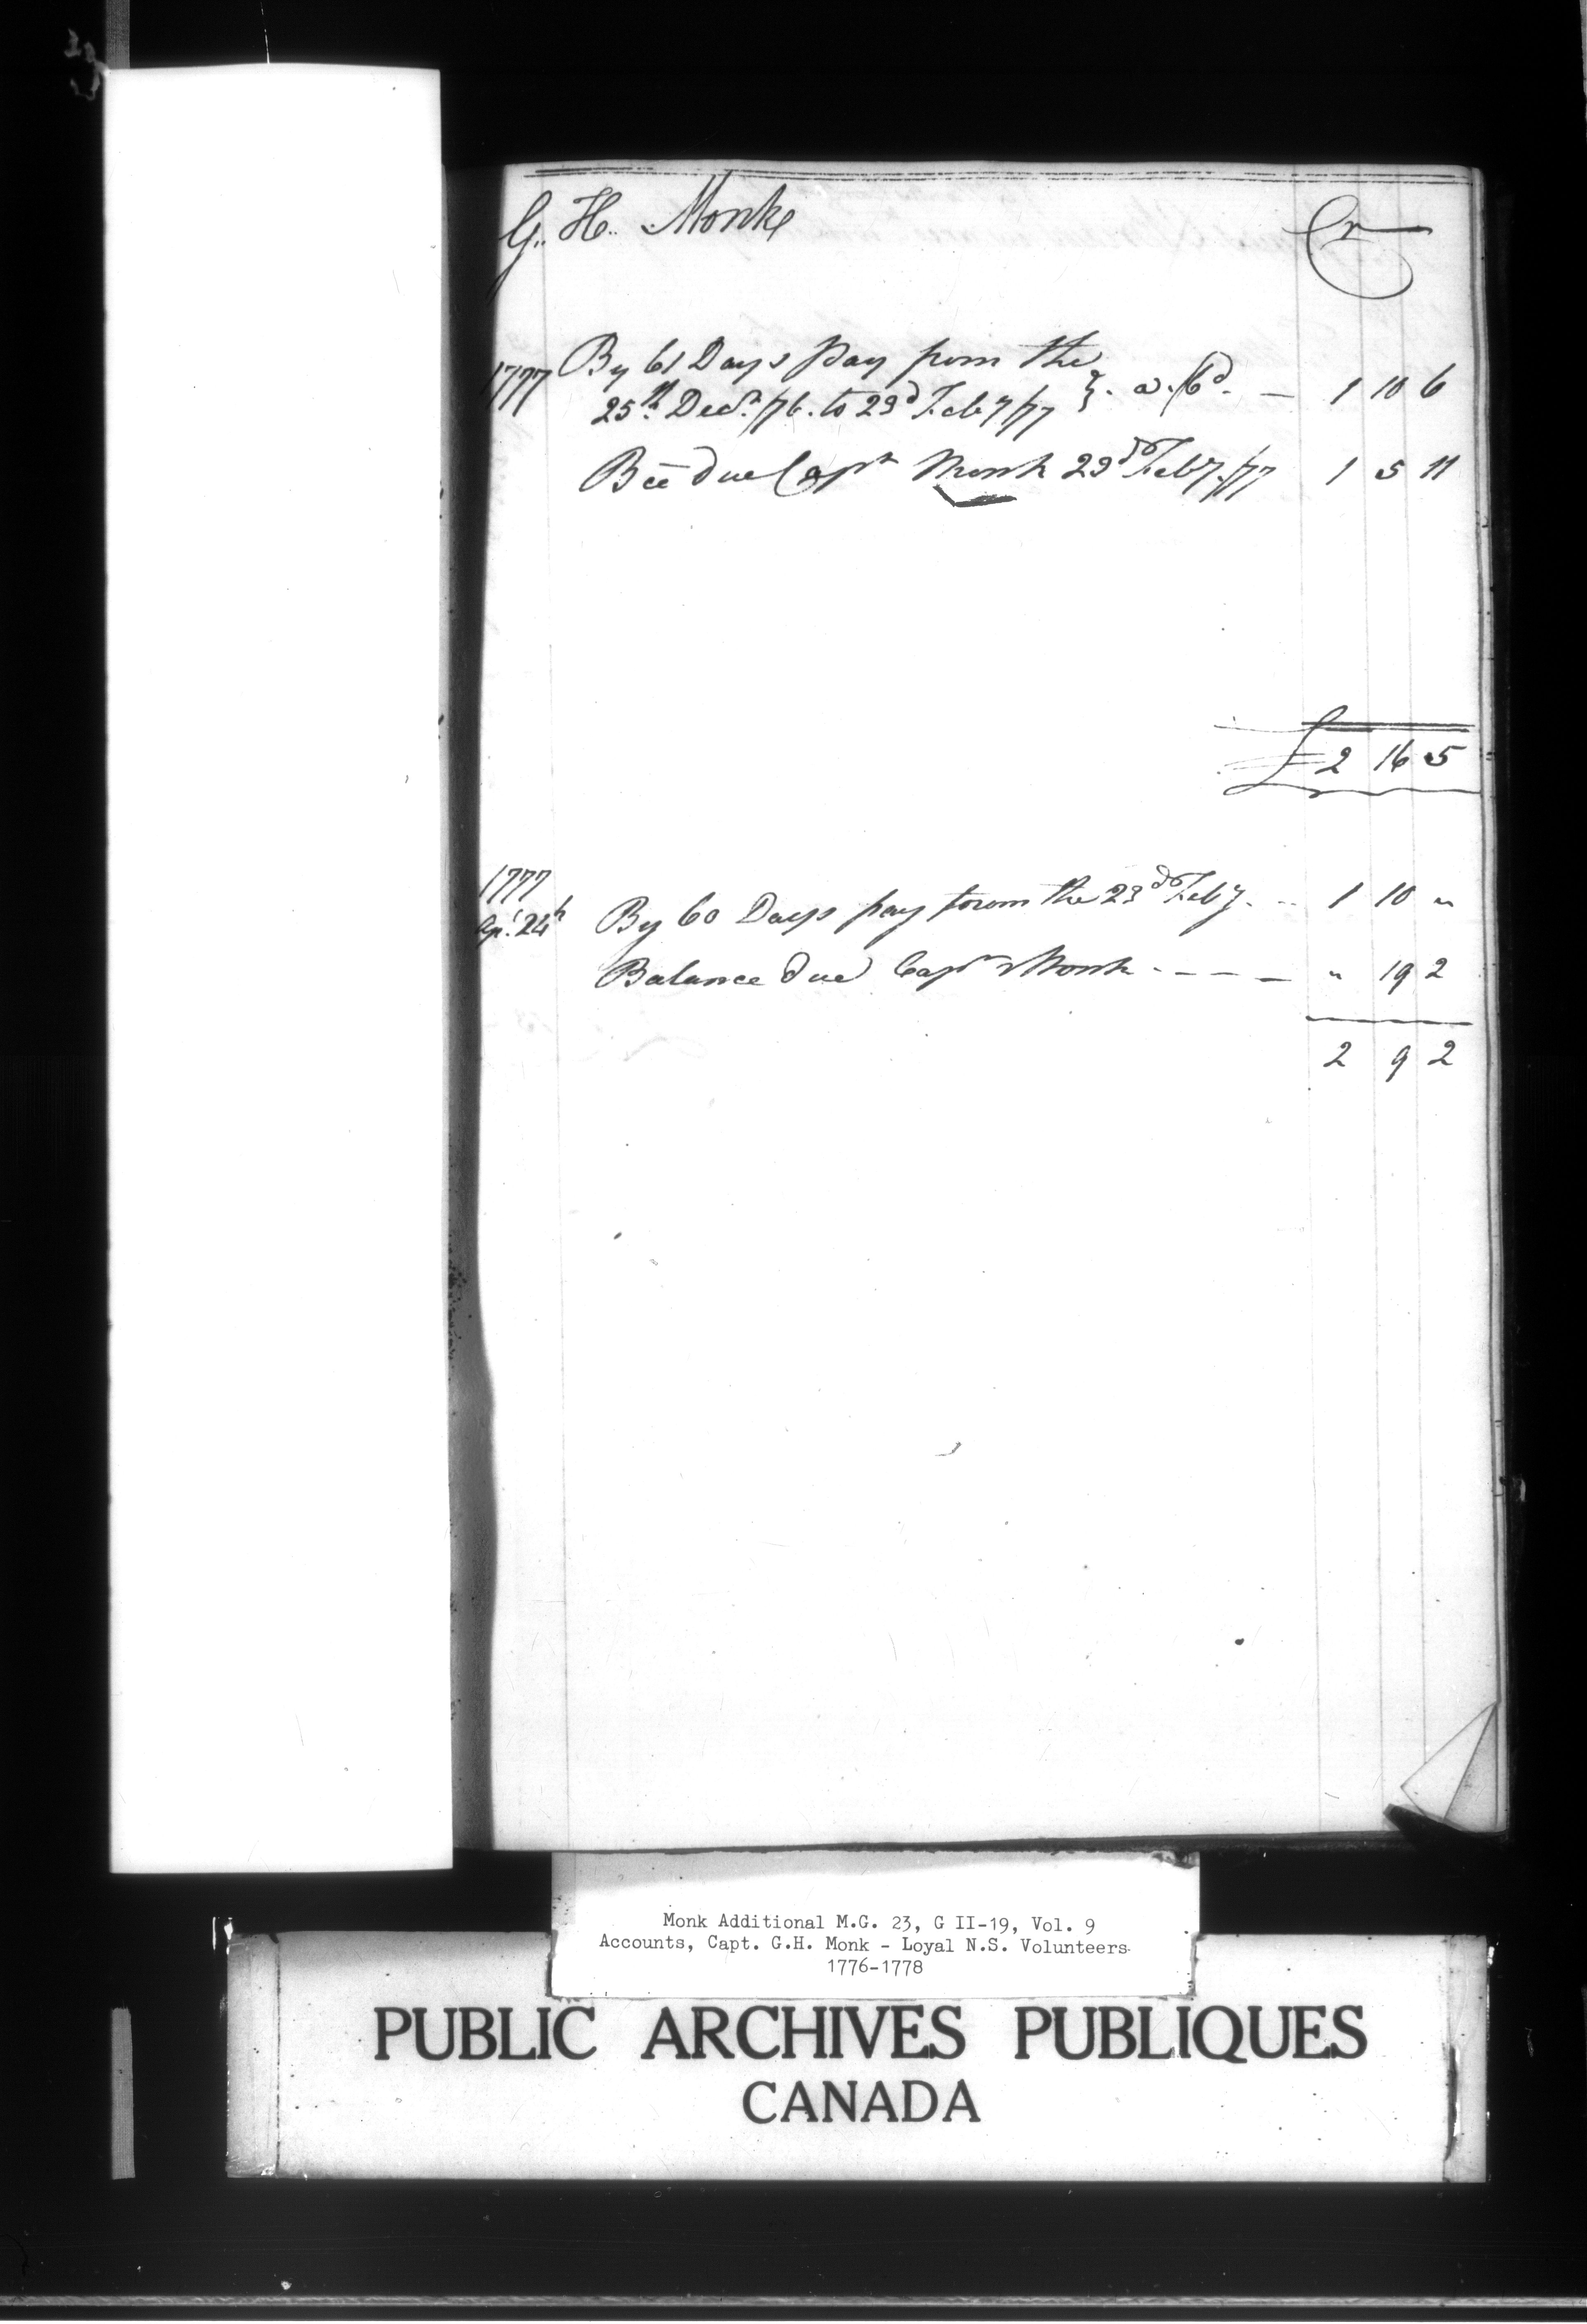 G. H. Monk Cr
1777 By 61 Days Pay from the
25th Decr. /76. to 23d Feby /77 } . a. /6d. — 1 10 6
Bce due Capt Monk 23d Feby. /77 1 5 11
£ 2 16 5
1777
Apl. 24h By 60 Days pay from the 23d Feby. - - 1 10 "
Balance due Capt Monk - - - - " 19 2
2 9 2
Monk Additional M.G. 23, G II-19, Vol. 9
Accounts, Capt. G.H. Monk - Loyal N.S. Volunteers
1776-1778
PUBLIC ARCHIVES PUBLIQUES
CANADA